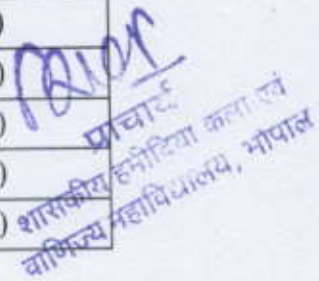 )
)
)
)
)
प्राचार्य
शासकीय हमीदिया कला एवं
वाणिज्य महाविद्यालय, भोपाल